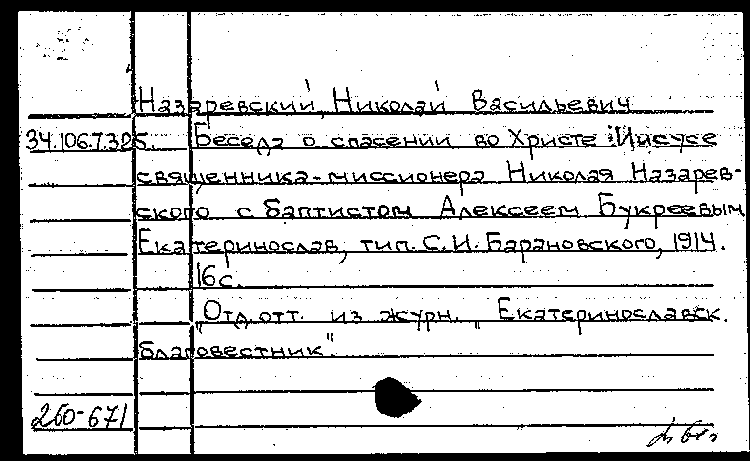 Назаревский, Николай Васильевич
34.106.7.325. Беседа о спасении во Христе Иисусе
священника-миссионера Николая Назарев-
ского с баптистом Алексеем Букреевым
Екатеринослав, тип. С.И. Барановского, 1914.
16 с.
„Отд. отт. из журн. „Екатеринославск.
благовестник".
260-671